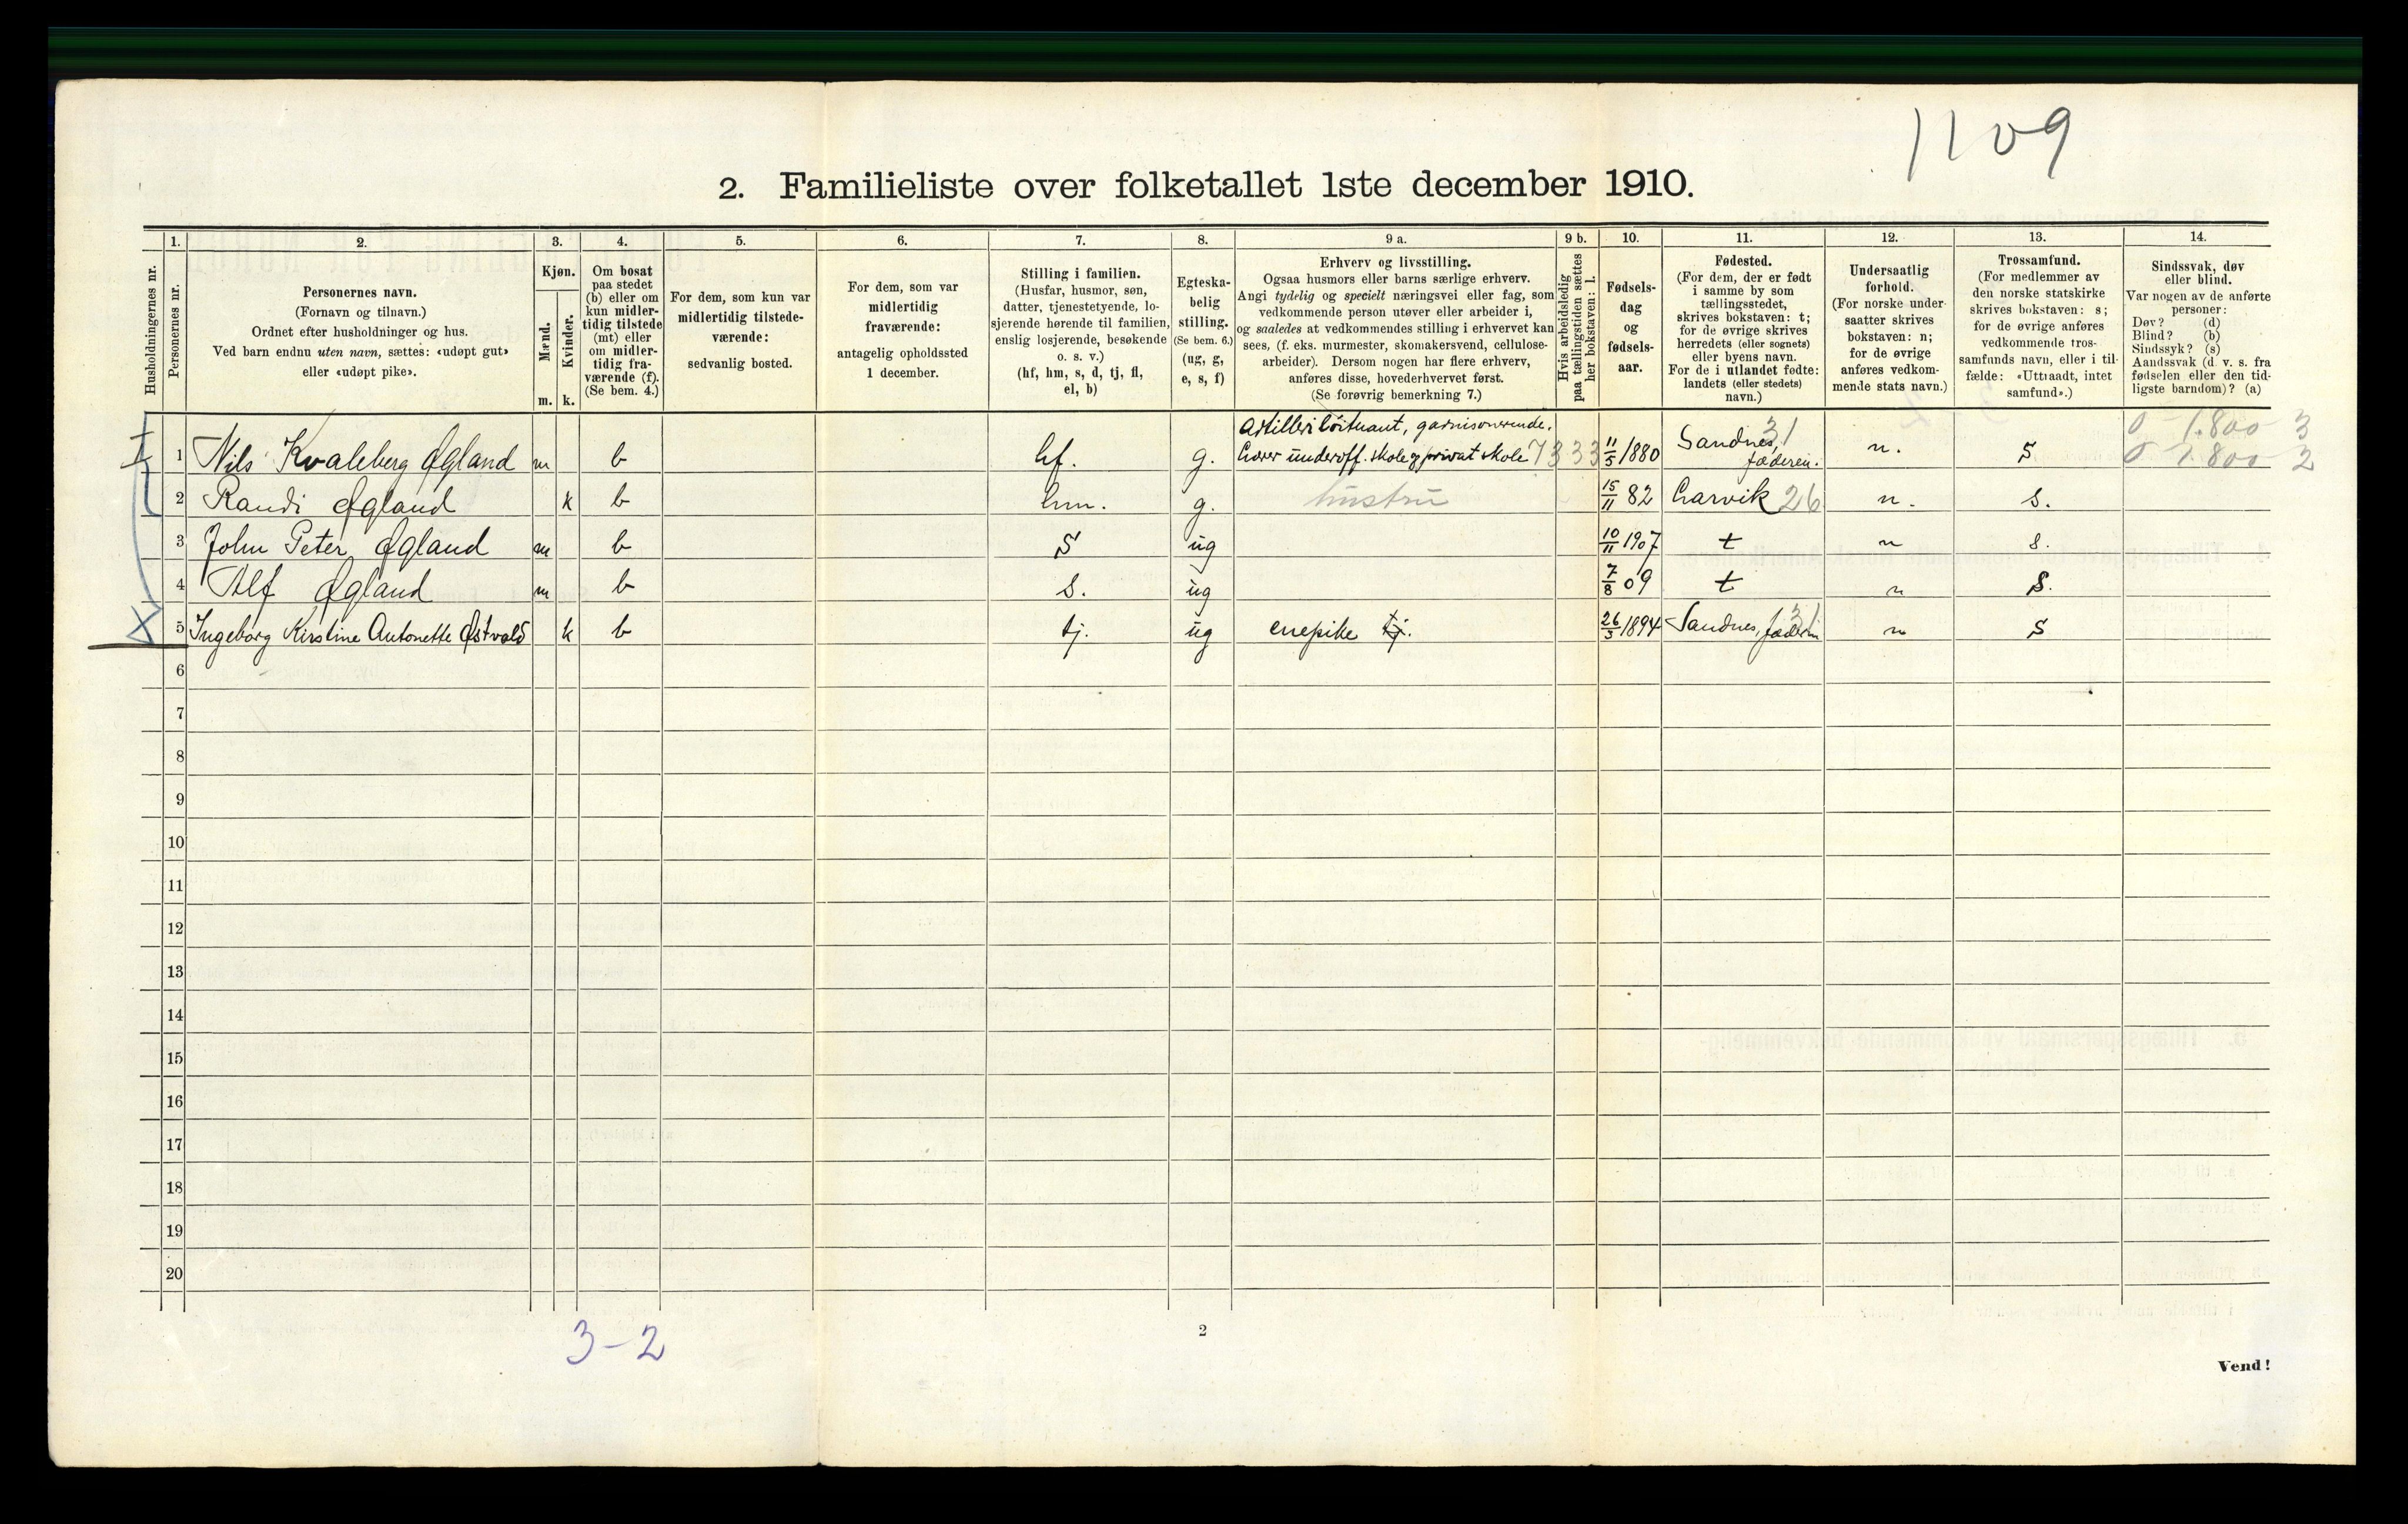 1109
2. Familieliste over folketallet 1ste december 1910.
1. 2. 3. 4. 5. 6. 7. 8. 9 a. 9 b. 10. 11. 12. 13. 14.
Husholdningernes nr.
Personernes nr.
Personernes navn.
(Fornavn og tilnavn.)
Ordnet efter husholdninger og hus.
Ved barn endnu uten navn, sættes: «udøpt gut»
eller «udøpt pike».
Kjøn.
Mænd.
Kvinder.
m. k.
Om bosat
paa stedet
(b) eller om
kun midler-
tidig tilstede
(mt) eller
om midler-
tidig fra-
værende (f).
(Se bem. 4.)
For dem, som kun var
midlertidig tilstede-
værende:
sedvanlig bosted.
For dem, som var
midlertidig
fraværende:
antagelig opholdssted
1 december.
Stilling i familien.
(Husfar, husmor, søn,
datter, tjenestetyende, lo-
sjerende hørende til familien,
enslig losjerende, besøkende
o. s. v.)
(hf, hm, s, d, tj, fl,
el, b)
Egteska-
belig
stilling.
(Se bem. 6.)
(ug, g,
e, s, f)
Erhverv og livsstilling.
Ogsaa husmors eller barns særlige erhverv.
Angi tydelig og specielt næringsvei eller fag, som
vedkommende person utøver eller arbeider i,
og saaledes at vedkommendes stilling i erhvervet kan
sees, (f. eks. murmester, skomakersvend, cellulose-
arbeider). Dersom nogen har flere erhverv,
anføres disse, hovederhvervet først.
(Se forøvrig bemerkning 7.)
Hvis arbeidsledig
paa tællingstiden sættes
her bokstaven: l.
Fødsels-
dag
og
fødsels-
aar.
Fødested.
(For dem, der er født
i samme by som
tællingsstedet,
skrives bokstaven: t;
for de øvrige skrives
herredets (eller sognets)
eller byens navn.
For de i utlandet fødte:
landets (eller stedets)
navn.)
Undersaatlig
forhold.
(For norske under-
saatter skrives
bokstaven: n;
for de øvrige
anføres vedkom-
mende stats navn.)
Trossamfund.
(For medlemmer av
den norske statskirke
skrives bokstaven: s;
for de øvrige anføres
vedkommende tros-
samfunds navn, eller i til-
fælde: «Uttraadt, intet
samfund».)
Sindssvak, døv
eller blind.
Var nogen av de anførte
personer:
Døv? (d)
Blind? (b)
Sindssyk? (s)
Aandssvak (d. v. s. fra
fødselen eller den tid-
ligste barndom)? (a)
Artilleriløitnant, garnisonerende. 31 0 1.800 3
1 Nils Kvaleberg Øgland m b hf. g. Lærer underoff. skole og privat skole 7333 11/5 1880 Sandnes, Jæderen. n. S 0 1.800 2
2 Randi Øgland k b hm. g. hustru 15/11 82 Larvik 26 n. s.
3 John Peter Øgland m b S ug 10/11 1907 t n s.
4 Alf Øgland m b s. ug 7/8 09 t n S.
5 Ingeborg Kirstine Antonette Østvold k b tj. ug enepike tj. 26/3 1894 Sandnes, Jæderen 31 n S
6
7
8
9
10
11
12
13
14
15
16
17
18
19
20
3-2
2
Vend!